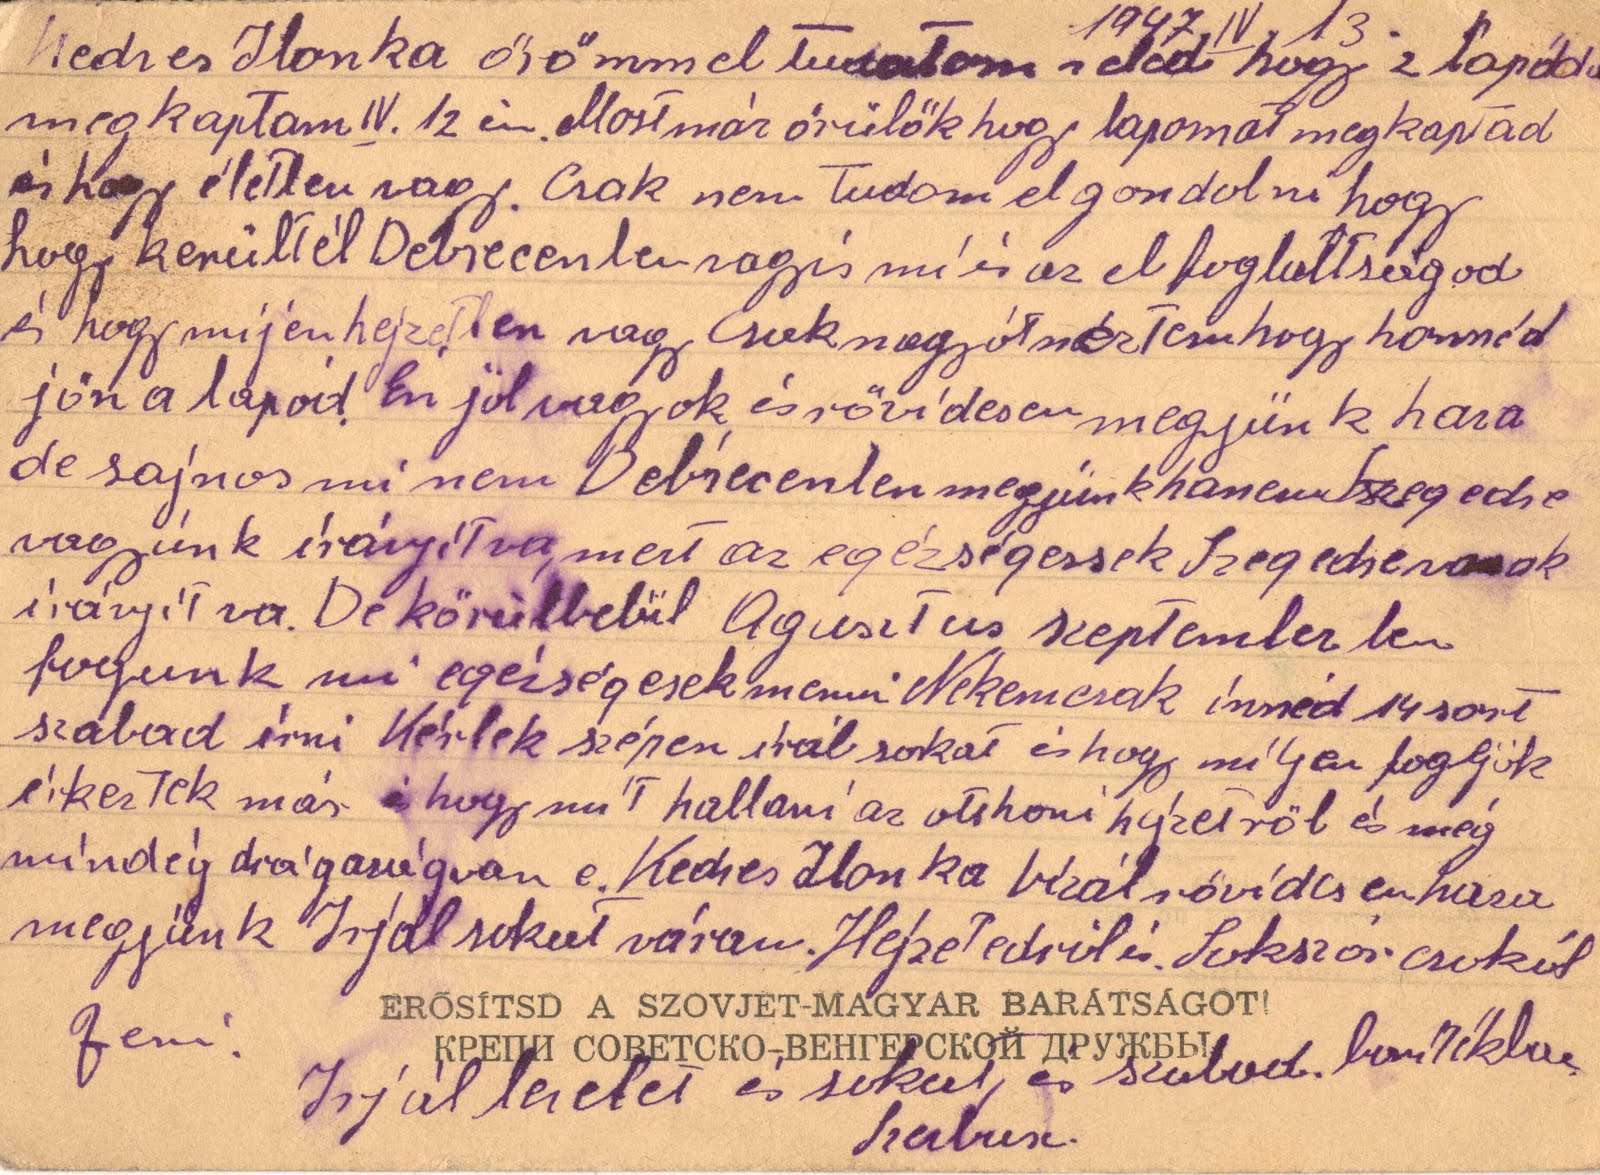 1947 IV. 13.
Kedves Ilonka örömmel tudatom veled hogy 2 lapóddu
megkaptam IV. 12 én. Most már örülök hogy lapomat megkaptad
és hogy életben vagy. Csak nem tudom elgondolni hogy
hogy kerültél Debrecenben vagyis mi és az el foglaltságod
és hogy mijen hejzetben vagy Csak nagyot néztem hogy honnéd
jön a lapód. Én jól vagyok és rövidesen megyünk haza
de sajnos mi nem Debrecenben megyünk hanem Szegedre
vagyunk irányitva, mert az egézségessek Szegedre vanak
irányitva. De körülbelül Agusztus szeptember ben
fogunk mi egézségesek menni Nekem csak innéd 14 sort
szabad irni Kérlek szépen irál sokat és hogy milyen foglyok
érkeztek más és hogy mit hallani az otthoni hejzetröl és még
mindég drágaság van e. Kedves Ilonka bizál rövidesen haza
megyünk Irjál sokat várom. Hejzetedröl is. Sokszór csokól
Jeni.
ERŐSÍTSD A SZOVJET-MAGYAR BARÁTSÁGOT!
КРЕПИ СОВЕТСКО-ВЕНГЕРСКОЙ ДРУЖБЫ
Irjál levelet és sokat, és szabad. boritékban